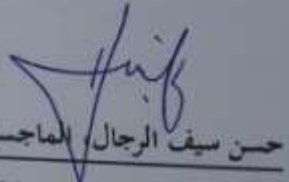 حسن سيف الرجال، الماجس